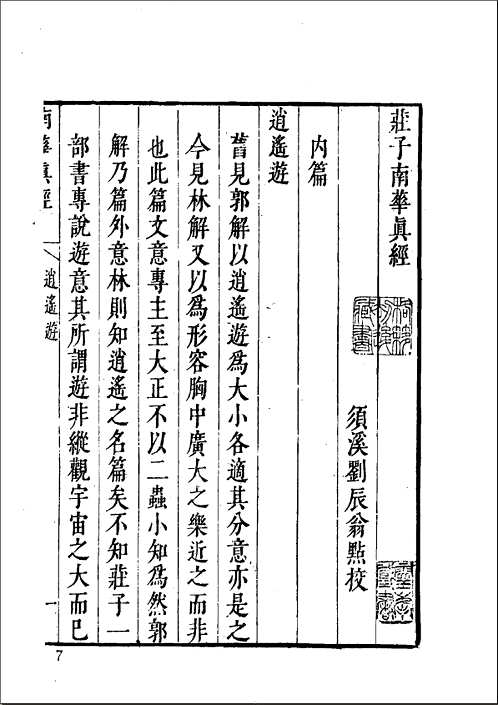 莊子南華眞經
須溪劉辰翁點校
内篇
逍遙遊
舊見郭解以逍遙遊爲大小各適其分意亦是之
今見林解又以爲形容胸中廣大之樂近之而非
也此篇文意專主至大正不以二蟲小知爲然郭
解乃篇外意林則知逍遙之名篇矣不知莊子一
部書專說遊意其所謂遊非縱觀宇宙之大而已
南華眞經
逍遙遊
一
7